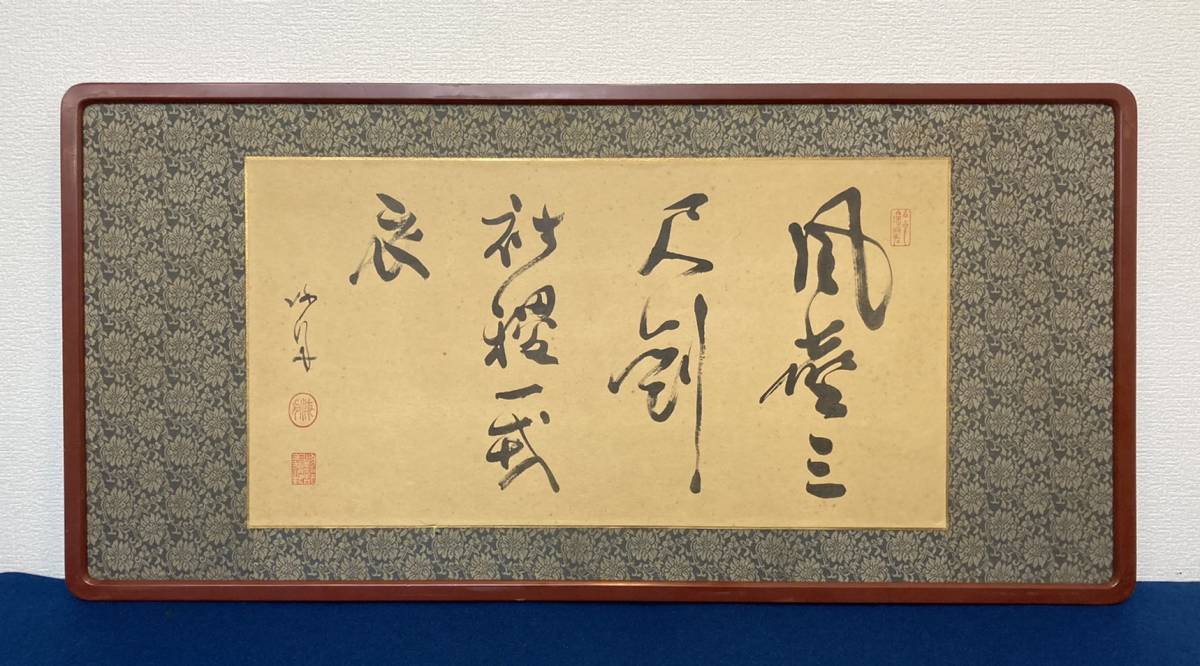 風塵三
尺劍
社稷一戎
衣